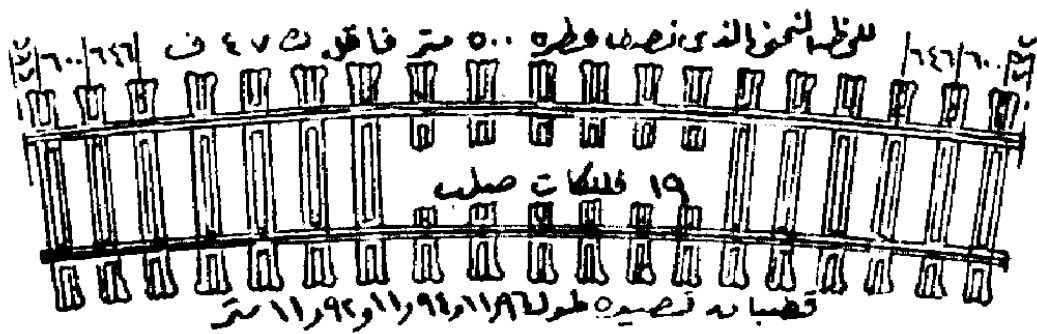 للخط المنحنى الذى نصف قطره ٥٠٠ متر فأقل ث ٤٧ ف
٦٠٠ ٦٤٦ ٦٤٦ ٦٠٠
١٩ فلنكات صلب
قضبان قصيره طول ١١٫٩٦ و ١١٫٩٤ و ١١٫٩٢ متر